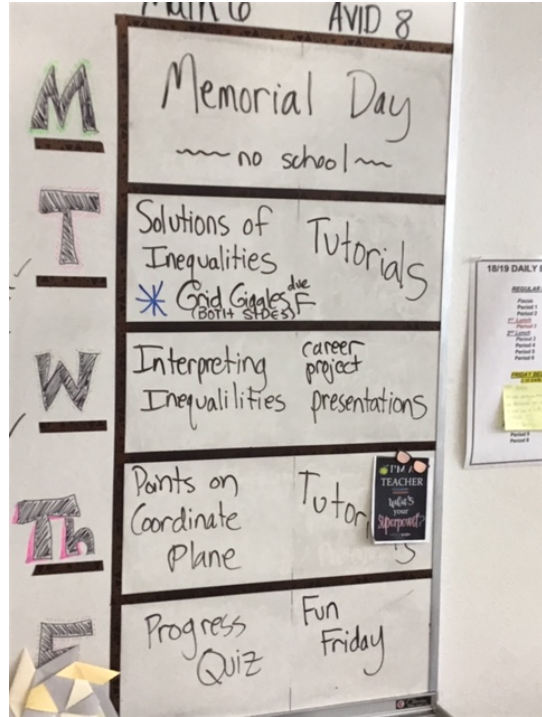 Math 6 AVID 8
M
Memorial Day
no school
T
Solutions of
Inequalities
Grid Giggles due F
(BOTH SIDES)
Tutorials
W
Interpreting
Inequalilities
career
project
presentations
Th
Points on
Coordinate
Plane
I'M A
TEACHER
what's
your
superpower?
F
Progress
Quiz
Fun
Friday
18/19 DAILY
REGULAR
Period 1
Period 2
1st Lunch
Period 3
2nd Lunch
Period 3
Period 4
Period 5
Period 6
FRIDAY
Period 5
Period 6